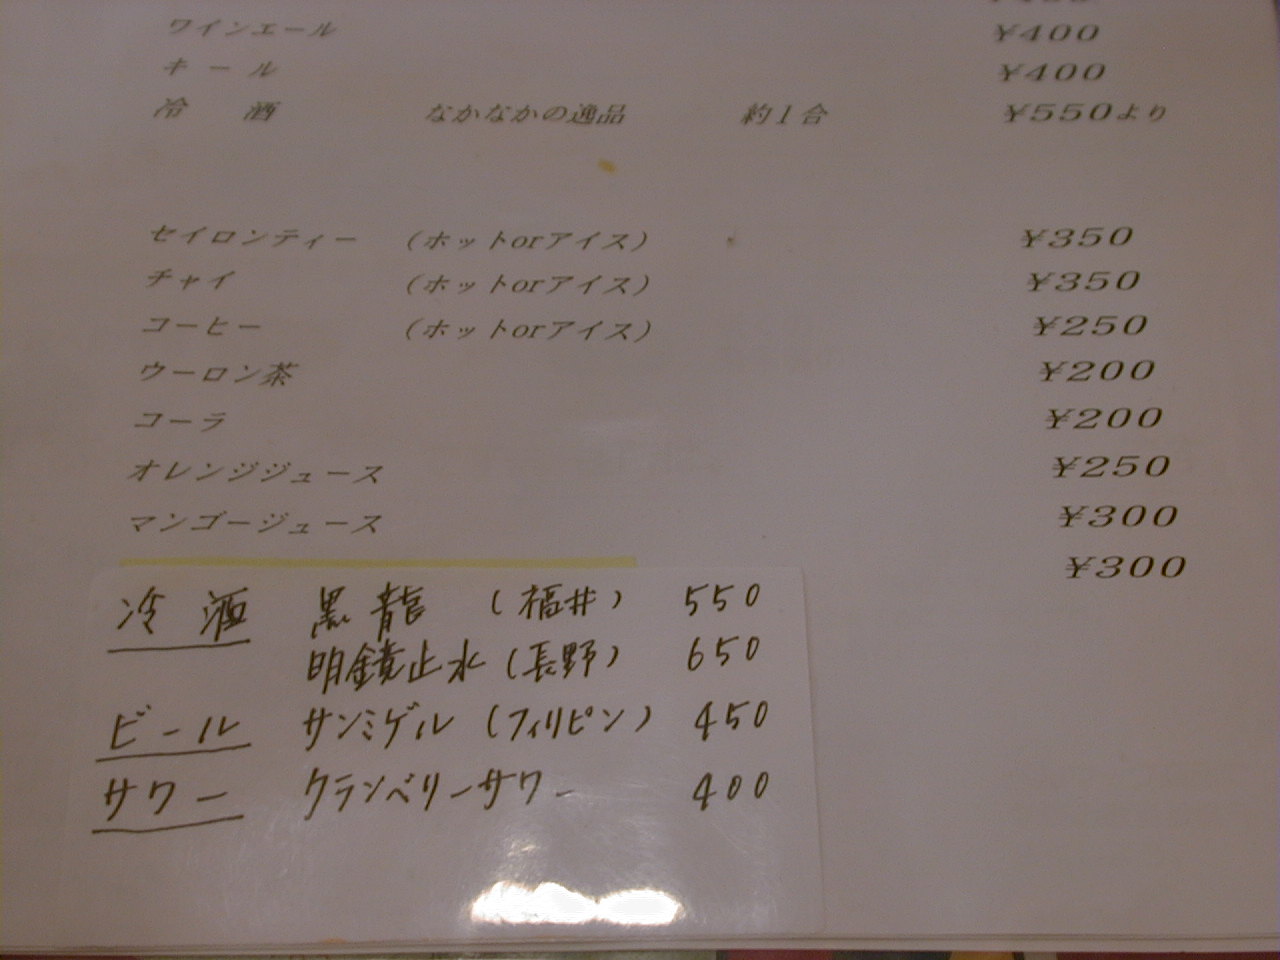 ワインエール ¥400
キール ¥400
冷 酒 なかなかの逸品 約1合 ¥550より
セイロンティー (ホットorアイス) ¥350
チャイ (ホットorアイス) ¥350
コーヒー (ホットorアイス) ¥250
ウーロン茶 ¥200
コーラ ¥200
オレンジジュース ¥250
マンゴージュース ¥300
¥300
冷 酒 黒龍 (福井) 550
明鏡止水 (長野) 650
ビール サンミゲル (フィリピン) 450
サワー クランベリーサワー 400